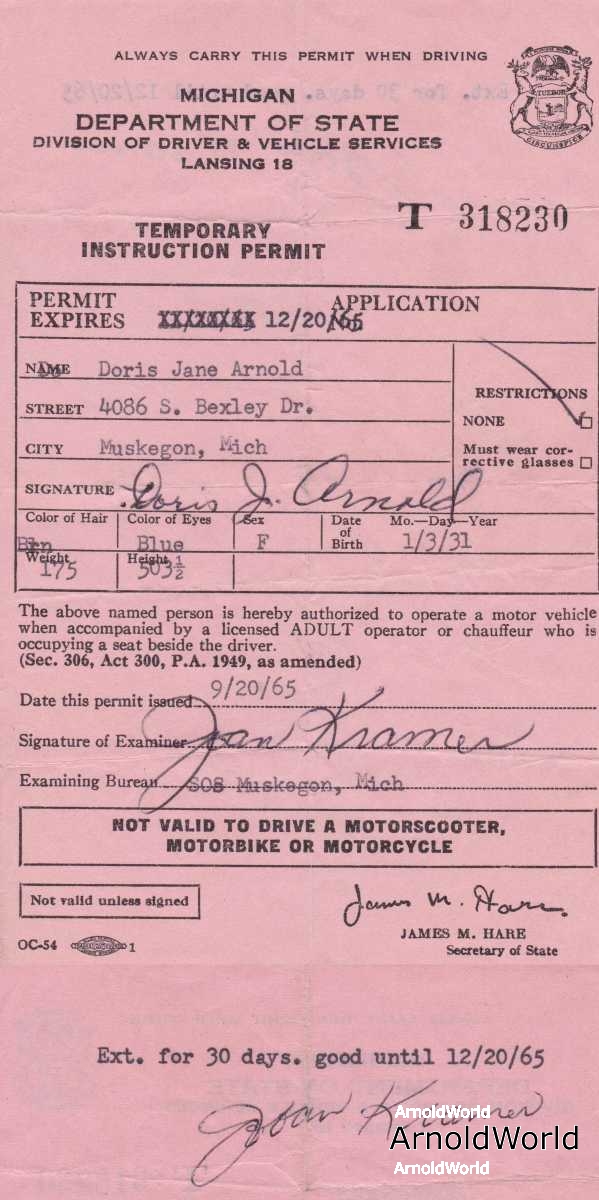 ALWAYS CARRY THIS PERMIT WHEN DRIVING
MICHIGAN
DEPARTMENT OF STATE
DIVISION OF DRIVER & VEHICLE SERVICES
LANSING 18
TUEBOR
CIRCUMSPICE
T 318230
TEMPORARY
INSTRUCTION PERMIT
PERMIT EXPIRES XX/XX/XX 12/20/65 APPLICATION
NAME Doris Jane Arnold
STREET 4086 S. Bexley Dr.
CITY Muskegon, Mich
RESTRICTIONS
NONE
Must wear cor-
rective glasses
SIGNATURE Doris J. Arnold
Color of Hair Color of Eyes Sex Date of Birth Mo.—Day—Year
Brn Blue F 1/3/31
Weight Height
175 503½
The above named person is hereby authorized to operate a motor vehicle
when accompanied by a licensed ADULT operator or chauffeur who is
occupying a seat beside the driver.
(Sec. 306, Act 300, P.A. 1949, as amended)
Date this permit issued 9/20/65
Signature of Examiner Joan Kramer
Examining Bureau SOS Muskegon, Mich
NOT VALID TO DRIVE A MOTORSCOOTER,
MOTORBIKE OR MOTORCYCLE
Not valid unless signed
James M. Hare
JAMES M. HARE
Secretary of State
OC-54 1
Ext. for 30 days. good until 12/20/65
Joan Kramer
ArnoldWorld
ArnoldWorld
ArnoldWorld